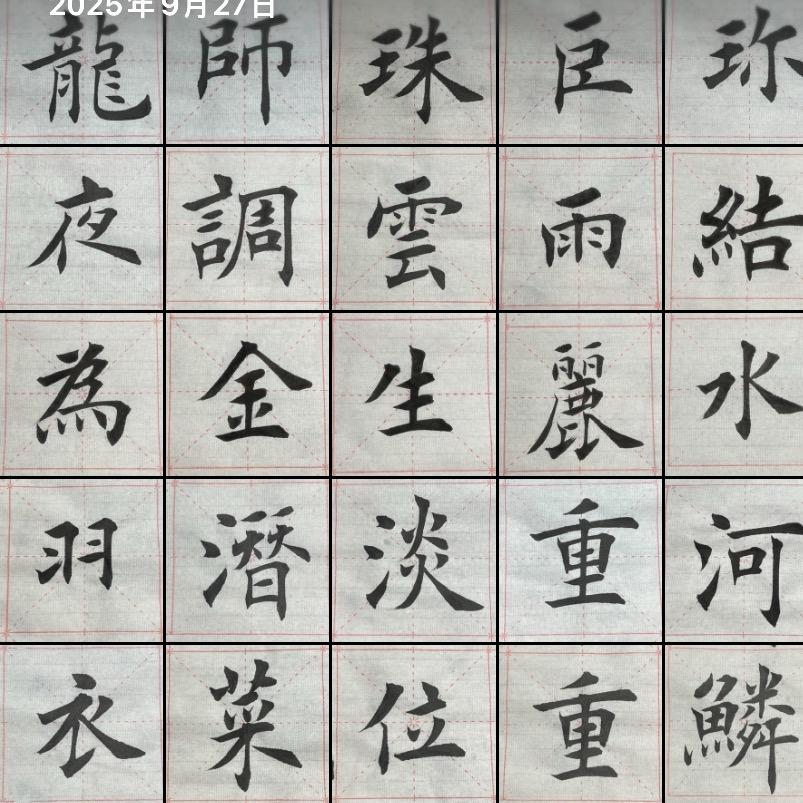 2025年9月27日
龍師珠巨珎
夜調雲雨結
為金生麗水
羽潛淡重河
衣菜位重鱗